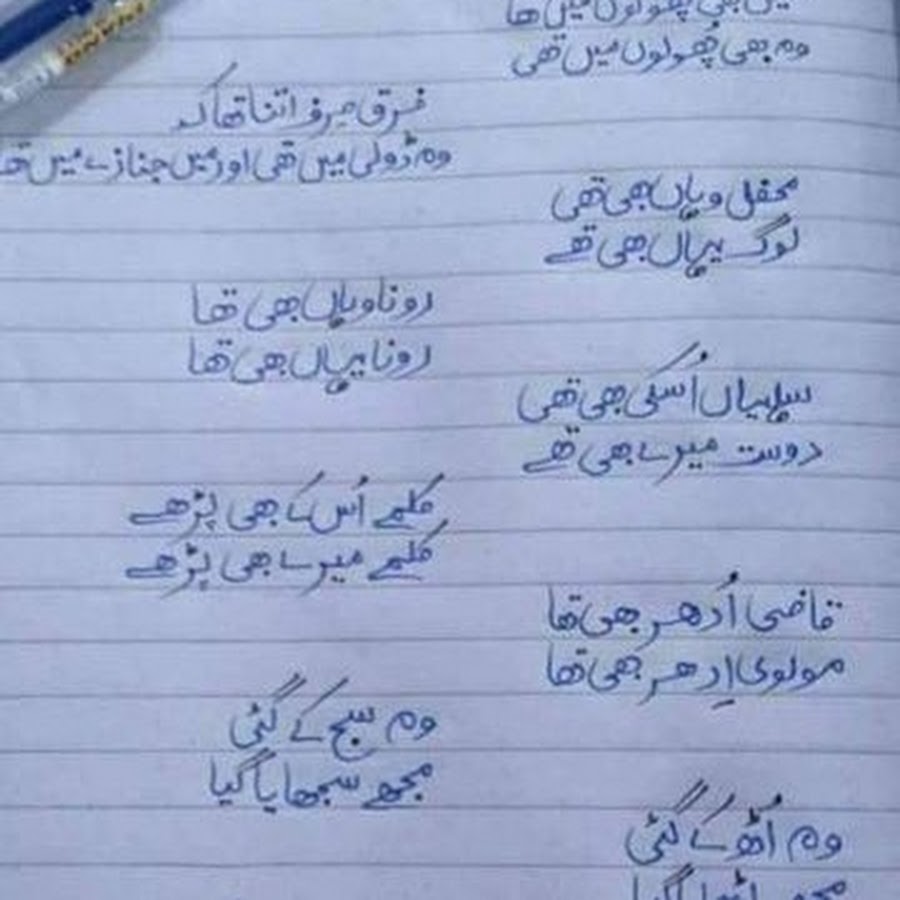 میں بھی پھولوں میں تھا
وہ بھی پھولوں میں تھی
فرق صرف اتنا تھا کہ
وہ ڈولی میں تھی اور میں جنازے میں تھا
محفل وہاں بھی تھی
لوگ یہاں بھی تھے
رونا وہاں بھی تھا
رونا یہاں بھی تھا
سہلیاں اُسکی بھی تھی
دوست میرے بھی تھے
کلمے اُس کے بھی پڑھے
کلمے میرے بھی پڑھے
قاضی اُدھر بھی تھا
مولوی اِدھر بھی تھا
وہ سج کے گئی
مجھے سجھایا گیا
وہ اُٹھ کے گئی